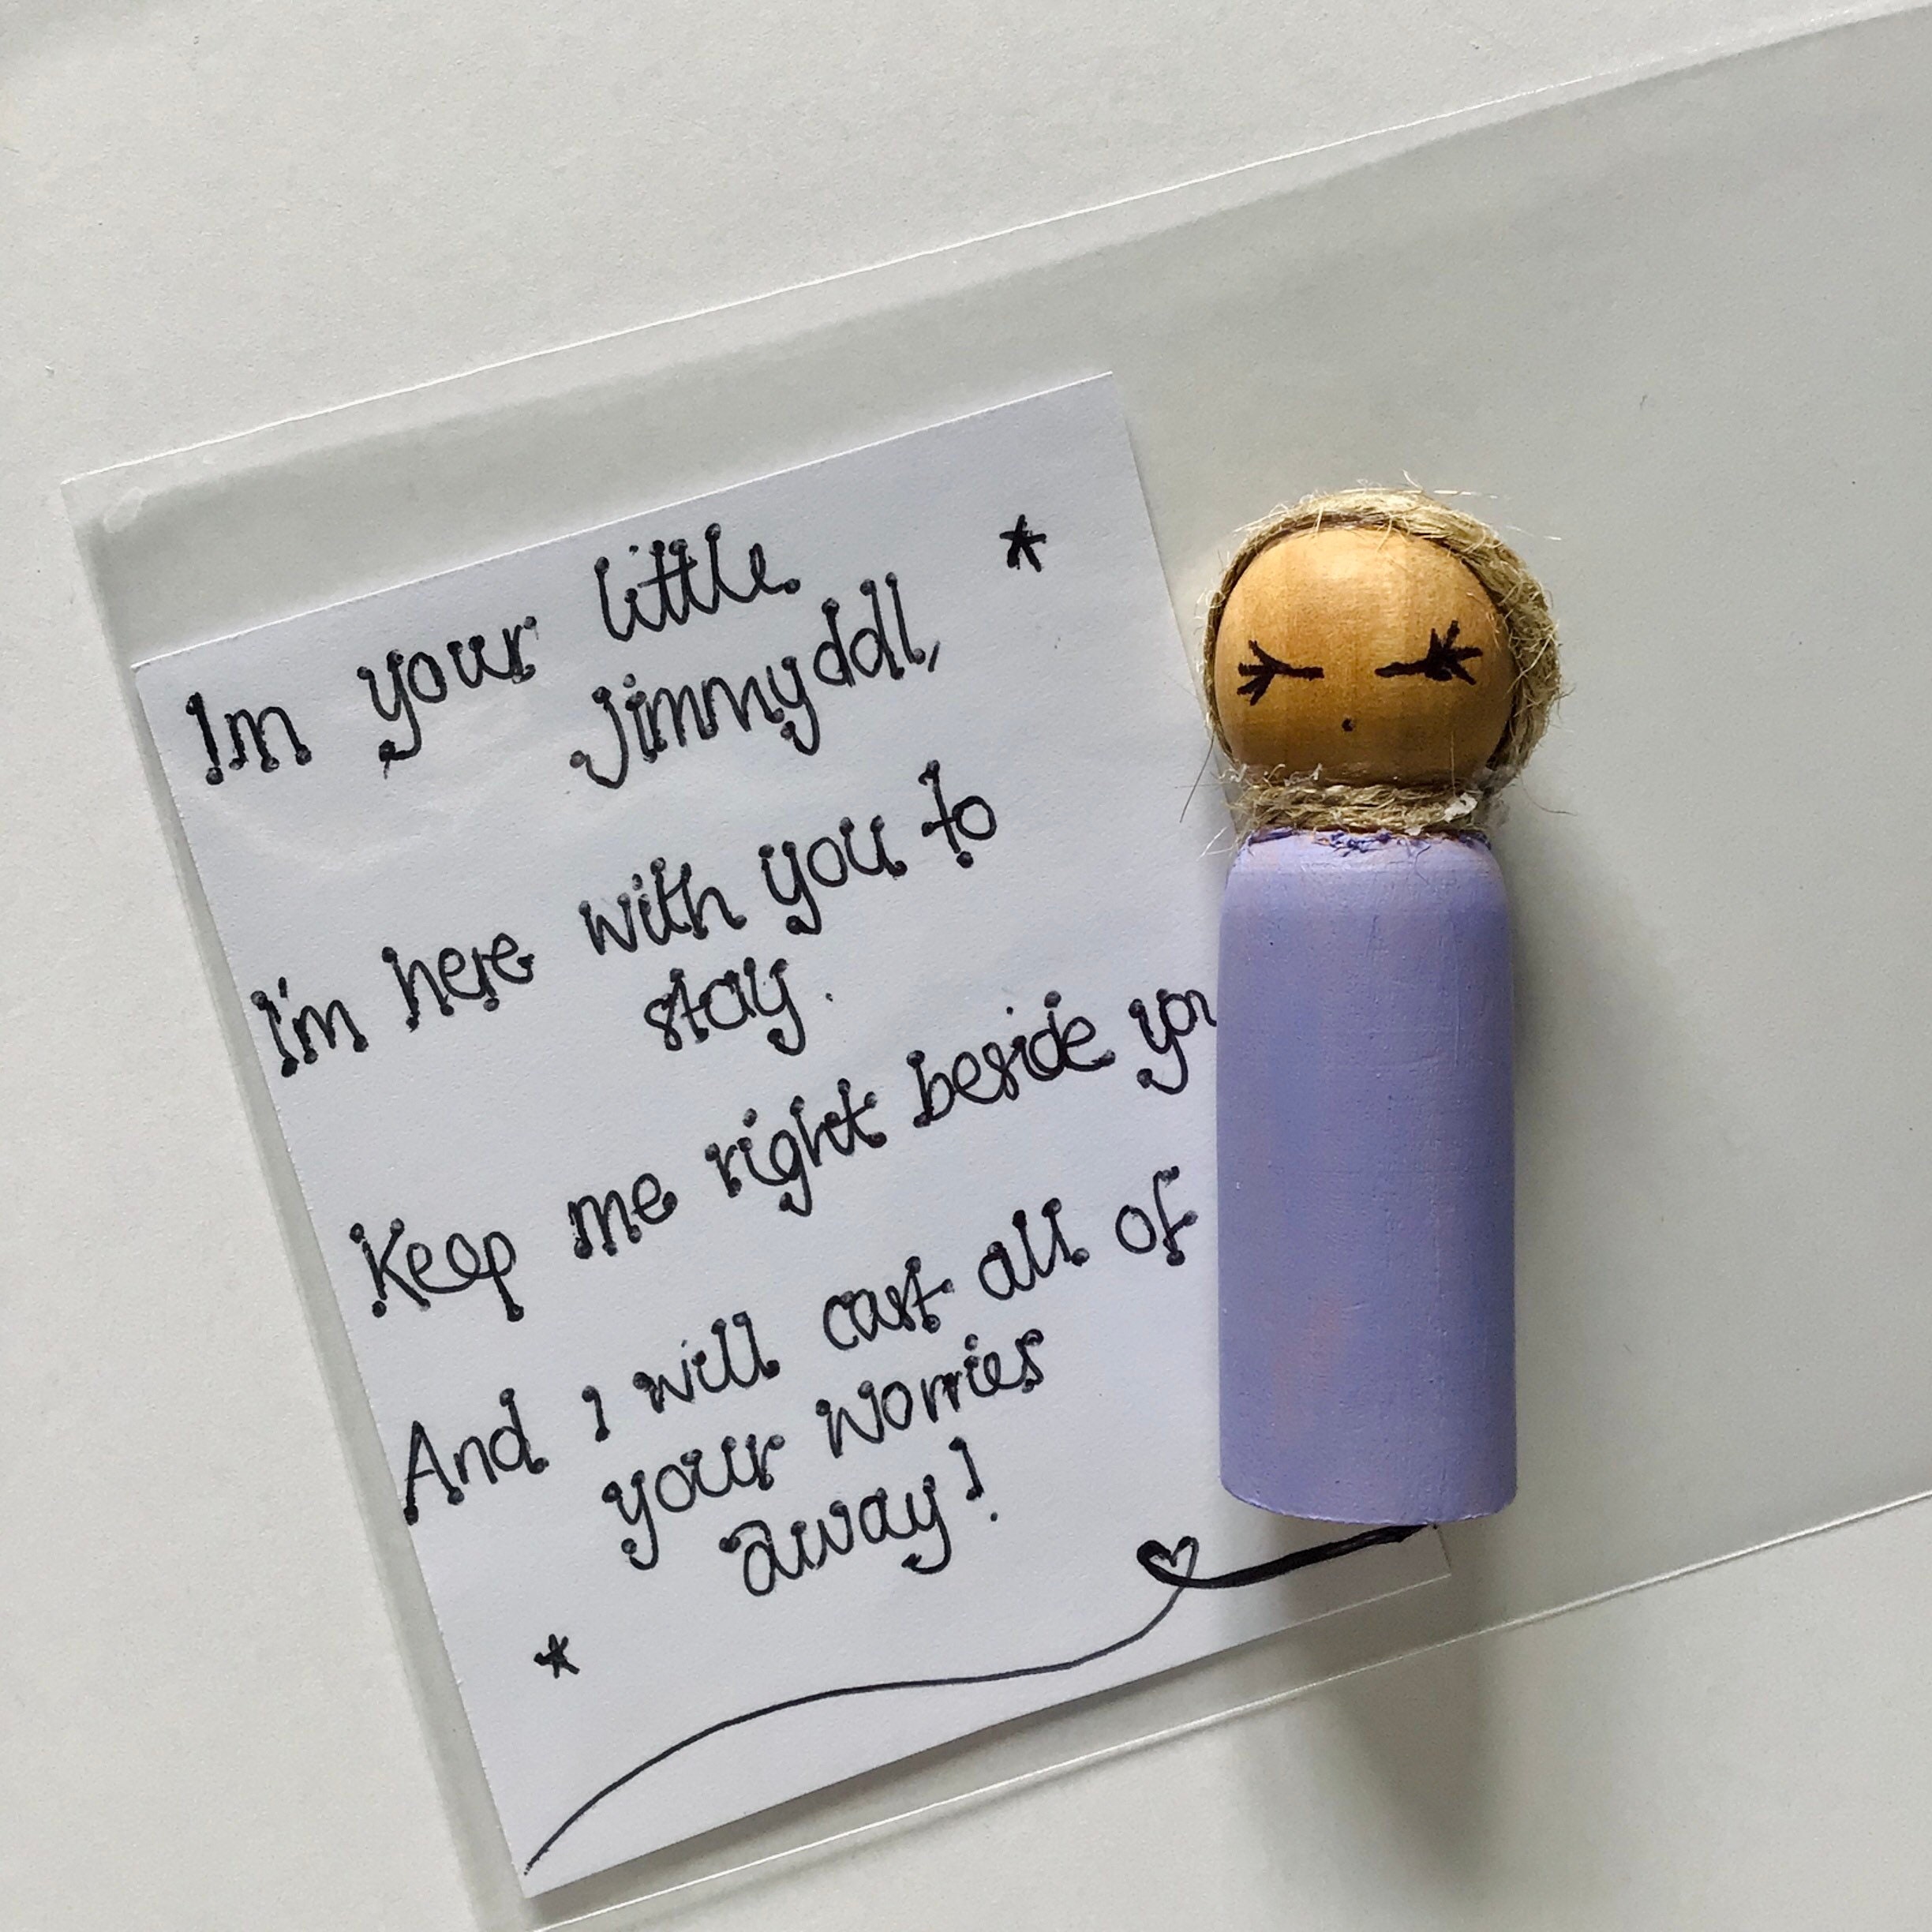 Im your little
Jimmydoll,
I'm here with you to
stay.
Keep me right beside you
And I will cast all of
your worries
away!